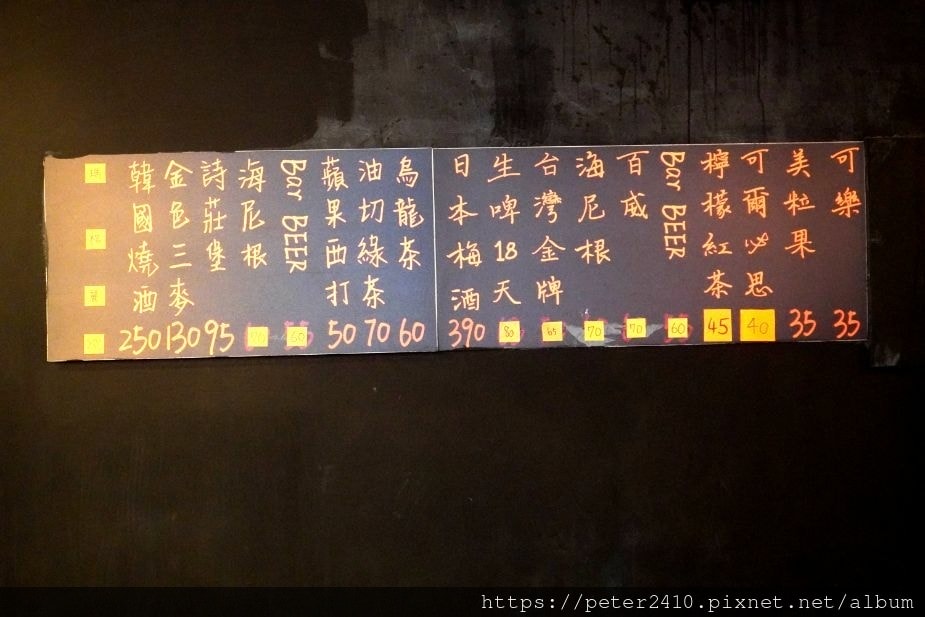 可樂 35
美粒果 35
可爾必思 40
檸檬紅茶 45
Bar BEER 60
百威 70
海尼根 70
台灣金牌 65
生啤18天 80
日本梅酒 390
烏龍茶 60
油切綠茶 70
蘋果西打 50
Bar BEER 60
海尼根 70
詩莊堡 95
金色三麥 130
韓國燒酒 250
https://peter2410.pixnet.net/album